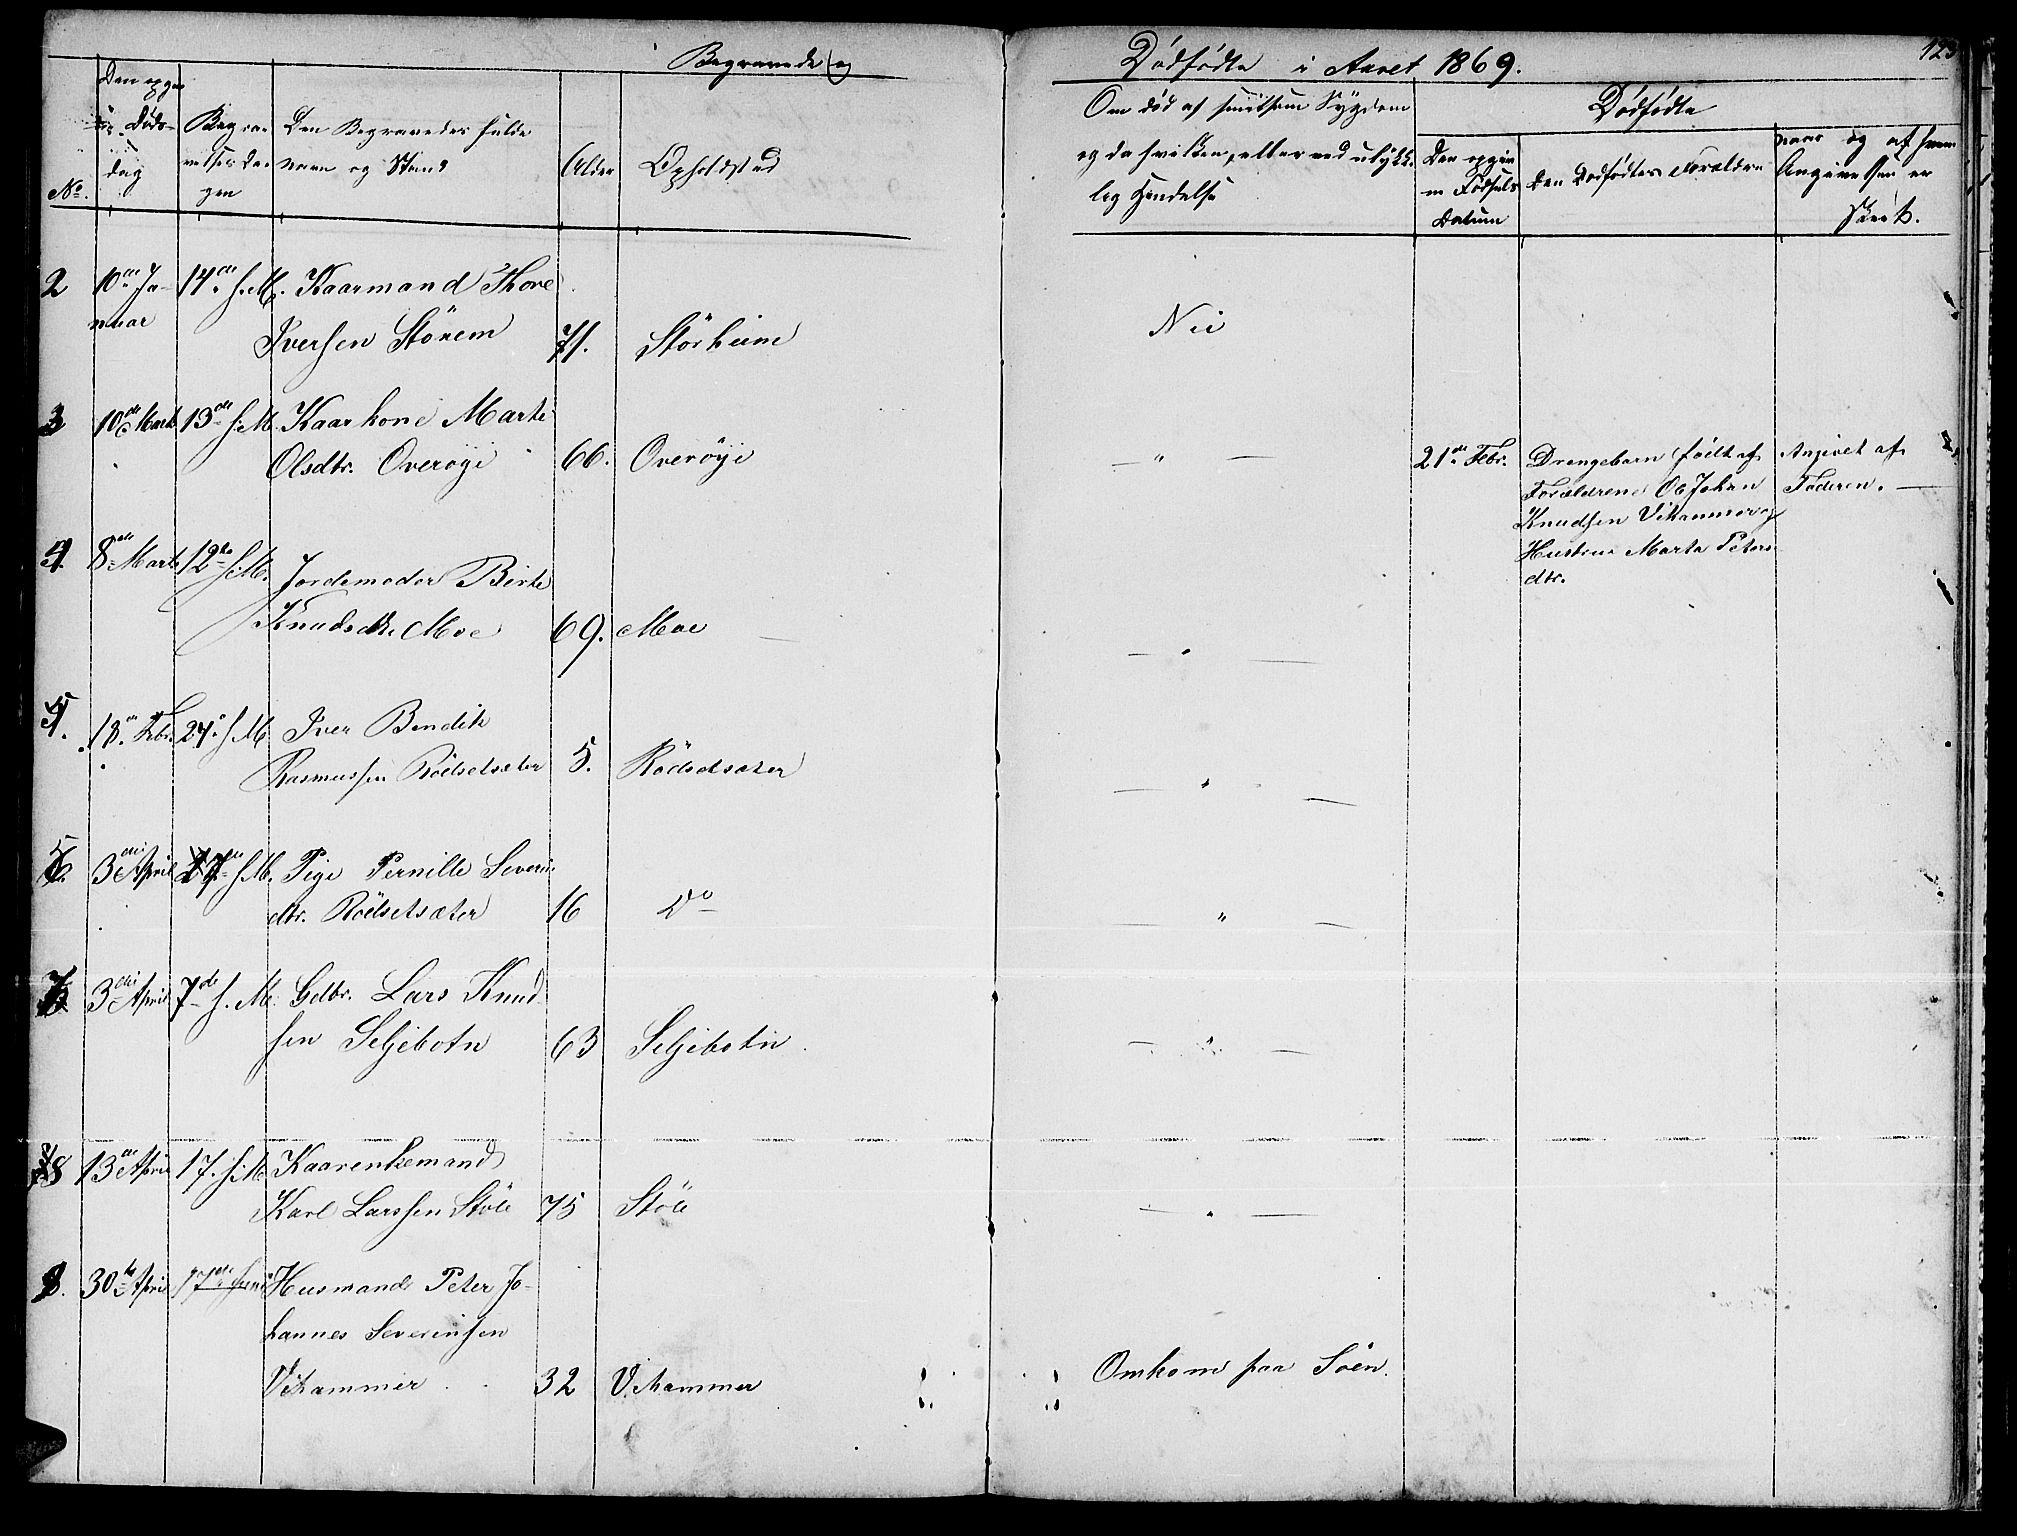 Begravede og Dødfødte i Aaret 1869.
123
No.
Den opgivne Dødsdag
Begravelsesdagen
Den Begravedes fulde
navn og Stand
Alder
Opholdsted
Om død af smitsom Sygdom
og da hvilken, eller ved ulykke-
lig Hendelse
Dødfødte
Den opgiv
ne Fødsels
Datum
Den Dødfødtes Forældre
naar og af hvem
Angivelsen er
skeet.
2 10de Ja- 14de s. M. Kaarmand Thore
nuar Iversen Störem 71. Störheim Nei
3 10de Marts 13de s. M. Kaarkone Marte
Olsdtr. Overöye 66. Overöye — " — 21de Febr. Drengebarn födt af Angivet af
Forældrene Ole Johan Faderen. —
Knudsen Vihammer og
Hustrue Marta Peters
dtr.
4. 8de Marts 12te s. M. Jordemoder Birte
Knudsdtr. Moe 69. Moe — " —
5. 18de Febr. 24de s. M. Iver Bendik
Rasmussen Rödsetsæter 5. Rödsetsæter — " —
6. 3die April 7de s. M. Pige Pernille Severin
dtr. Rödsetsæter 16 Do — " —
7 3die April 7de s. M. Gdbr. Lars Knud
sen Seljebotn 63 Seljebotn — " —
8 13de April 17. s. M. Kaarenkemand
Karl Larssen Störe 75 Störe — " —
9. 30te April 17de Juni Husmand Peter Jo-
hannes Severinsen
Vihammer 32 Vihammer Omkom paa Söen.